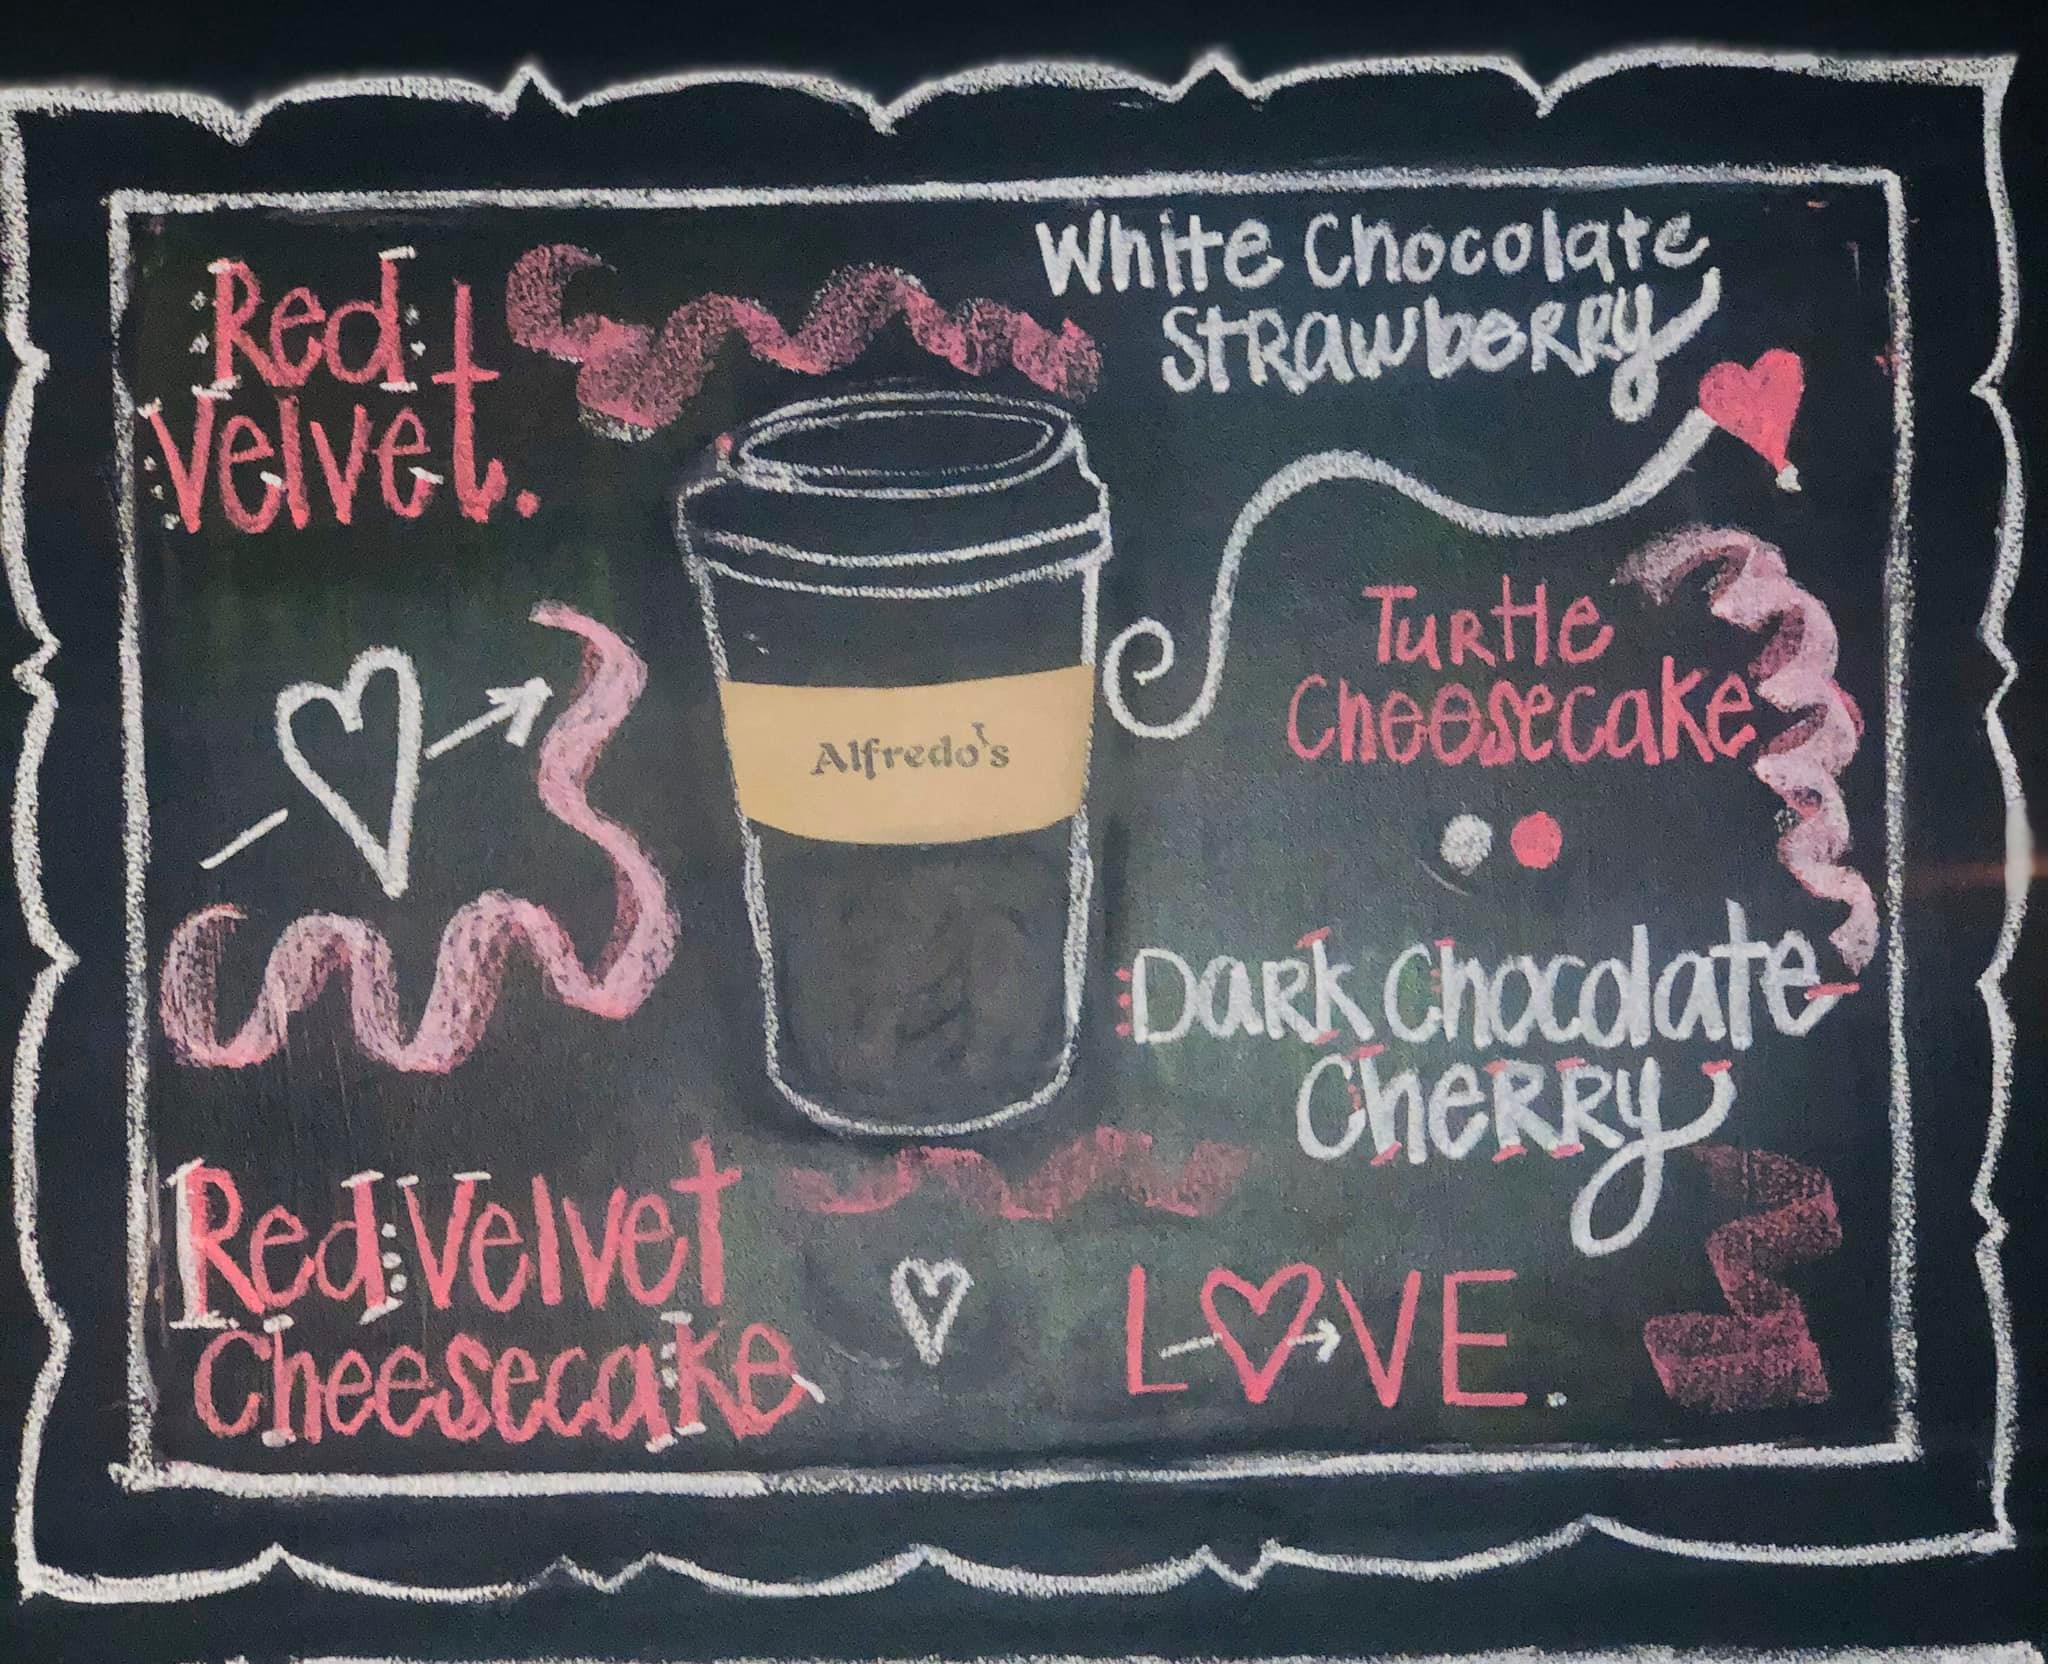 Red
Velvet.
White Chocolate
Strawberry
Turtle
Cheesecake
Alfredo's
Dark Chocolate
Cherry
Red Velvet
Cheesecake
LOVE.